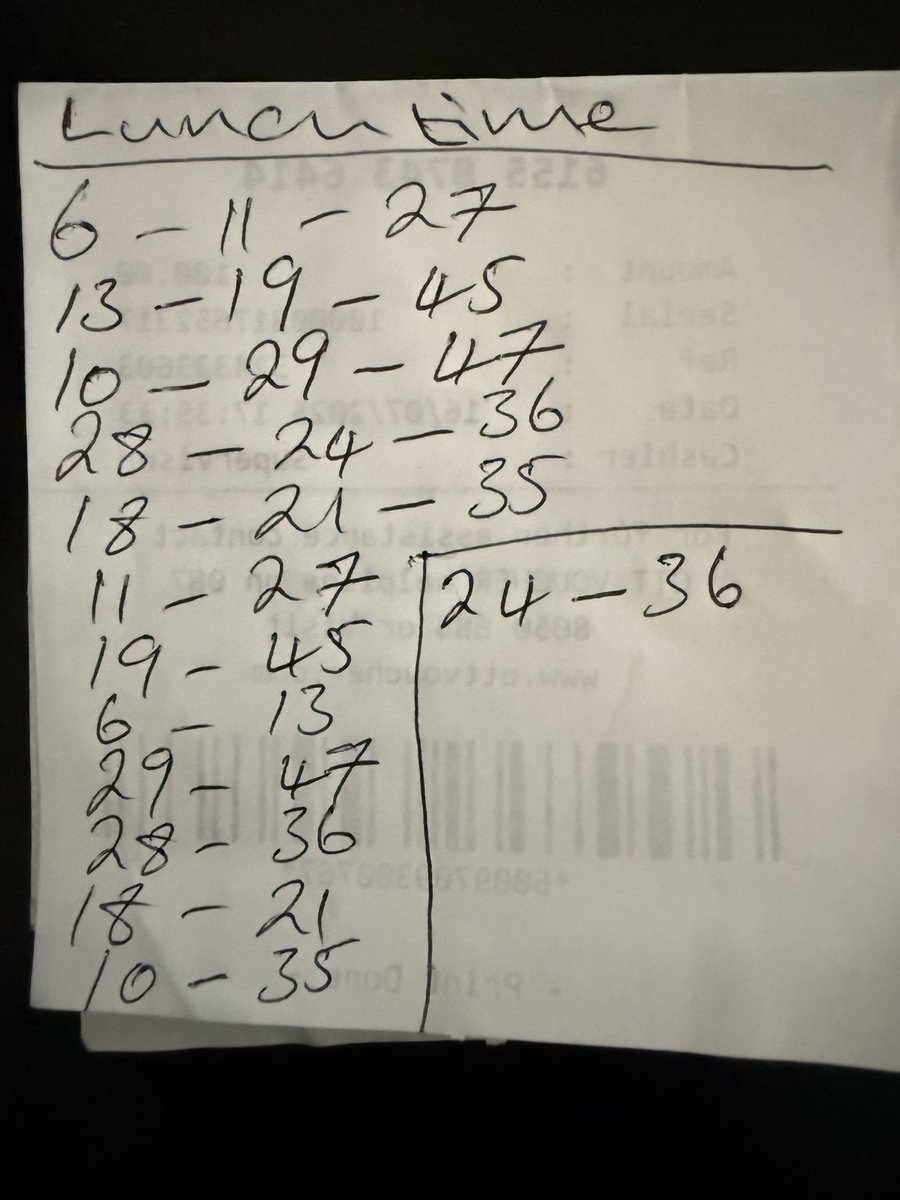 Lunch time
6 - 11 - 27
13 - 19 - 45
10 - 29 - 47
28 - 24 - 36
18 - 21 - 35
11 - 27
19 - 45
6 - 13
29 - 47
28 - 36
18 - 21
10 - 35
24 - 36